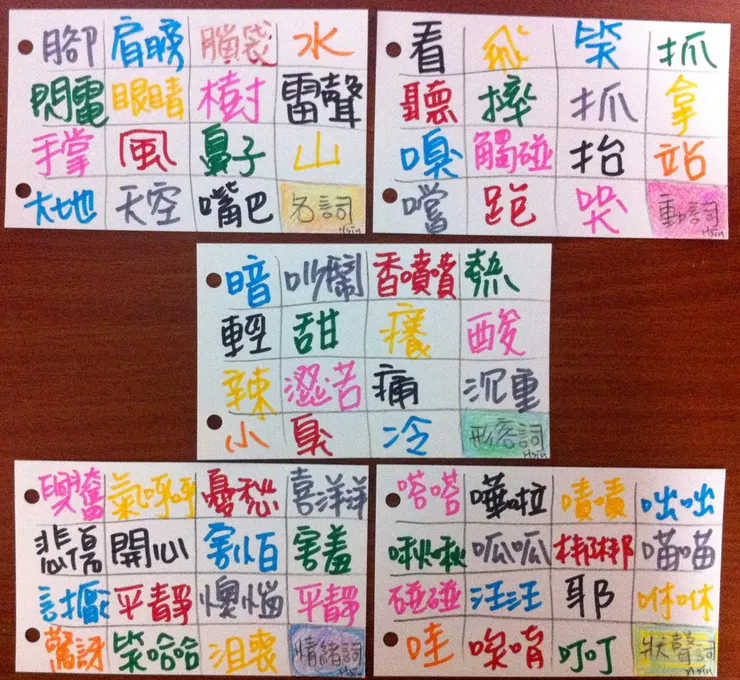 腳 肩膀 腦袋 水
閃電 眼睛 樹 雷聲
手掌 風 鼻子 山
大地 天空 嘴巴 名詞
Hsin
看 飛 笑 抓
聽 摔 抓 拿
嗅 觸碰 抬 站
嚐 跑 哭 動詞
Hsin
暗 吵鬧 香噴噴 熱
輕 甜 癢 酸
辣 澀苦 痛 沉重
小 臭 冷 形容詞
Hsin
興奮 氣呼呼 憂愁 喜洋洋
悲傷 開心 害怕 害羞
討厭 平靜 懊惱 平靜
驚訝 笑哈哈 沮喪 情緒詞
Hsin
嗒嗒 嘩啦 嘖嘖 咄咄
啾啾 呱呱 梆梆 喵喵
碰碰 汪汪 耶 咻咻
哇 唉唷 叮叮 狀聲詞
Hsin